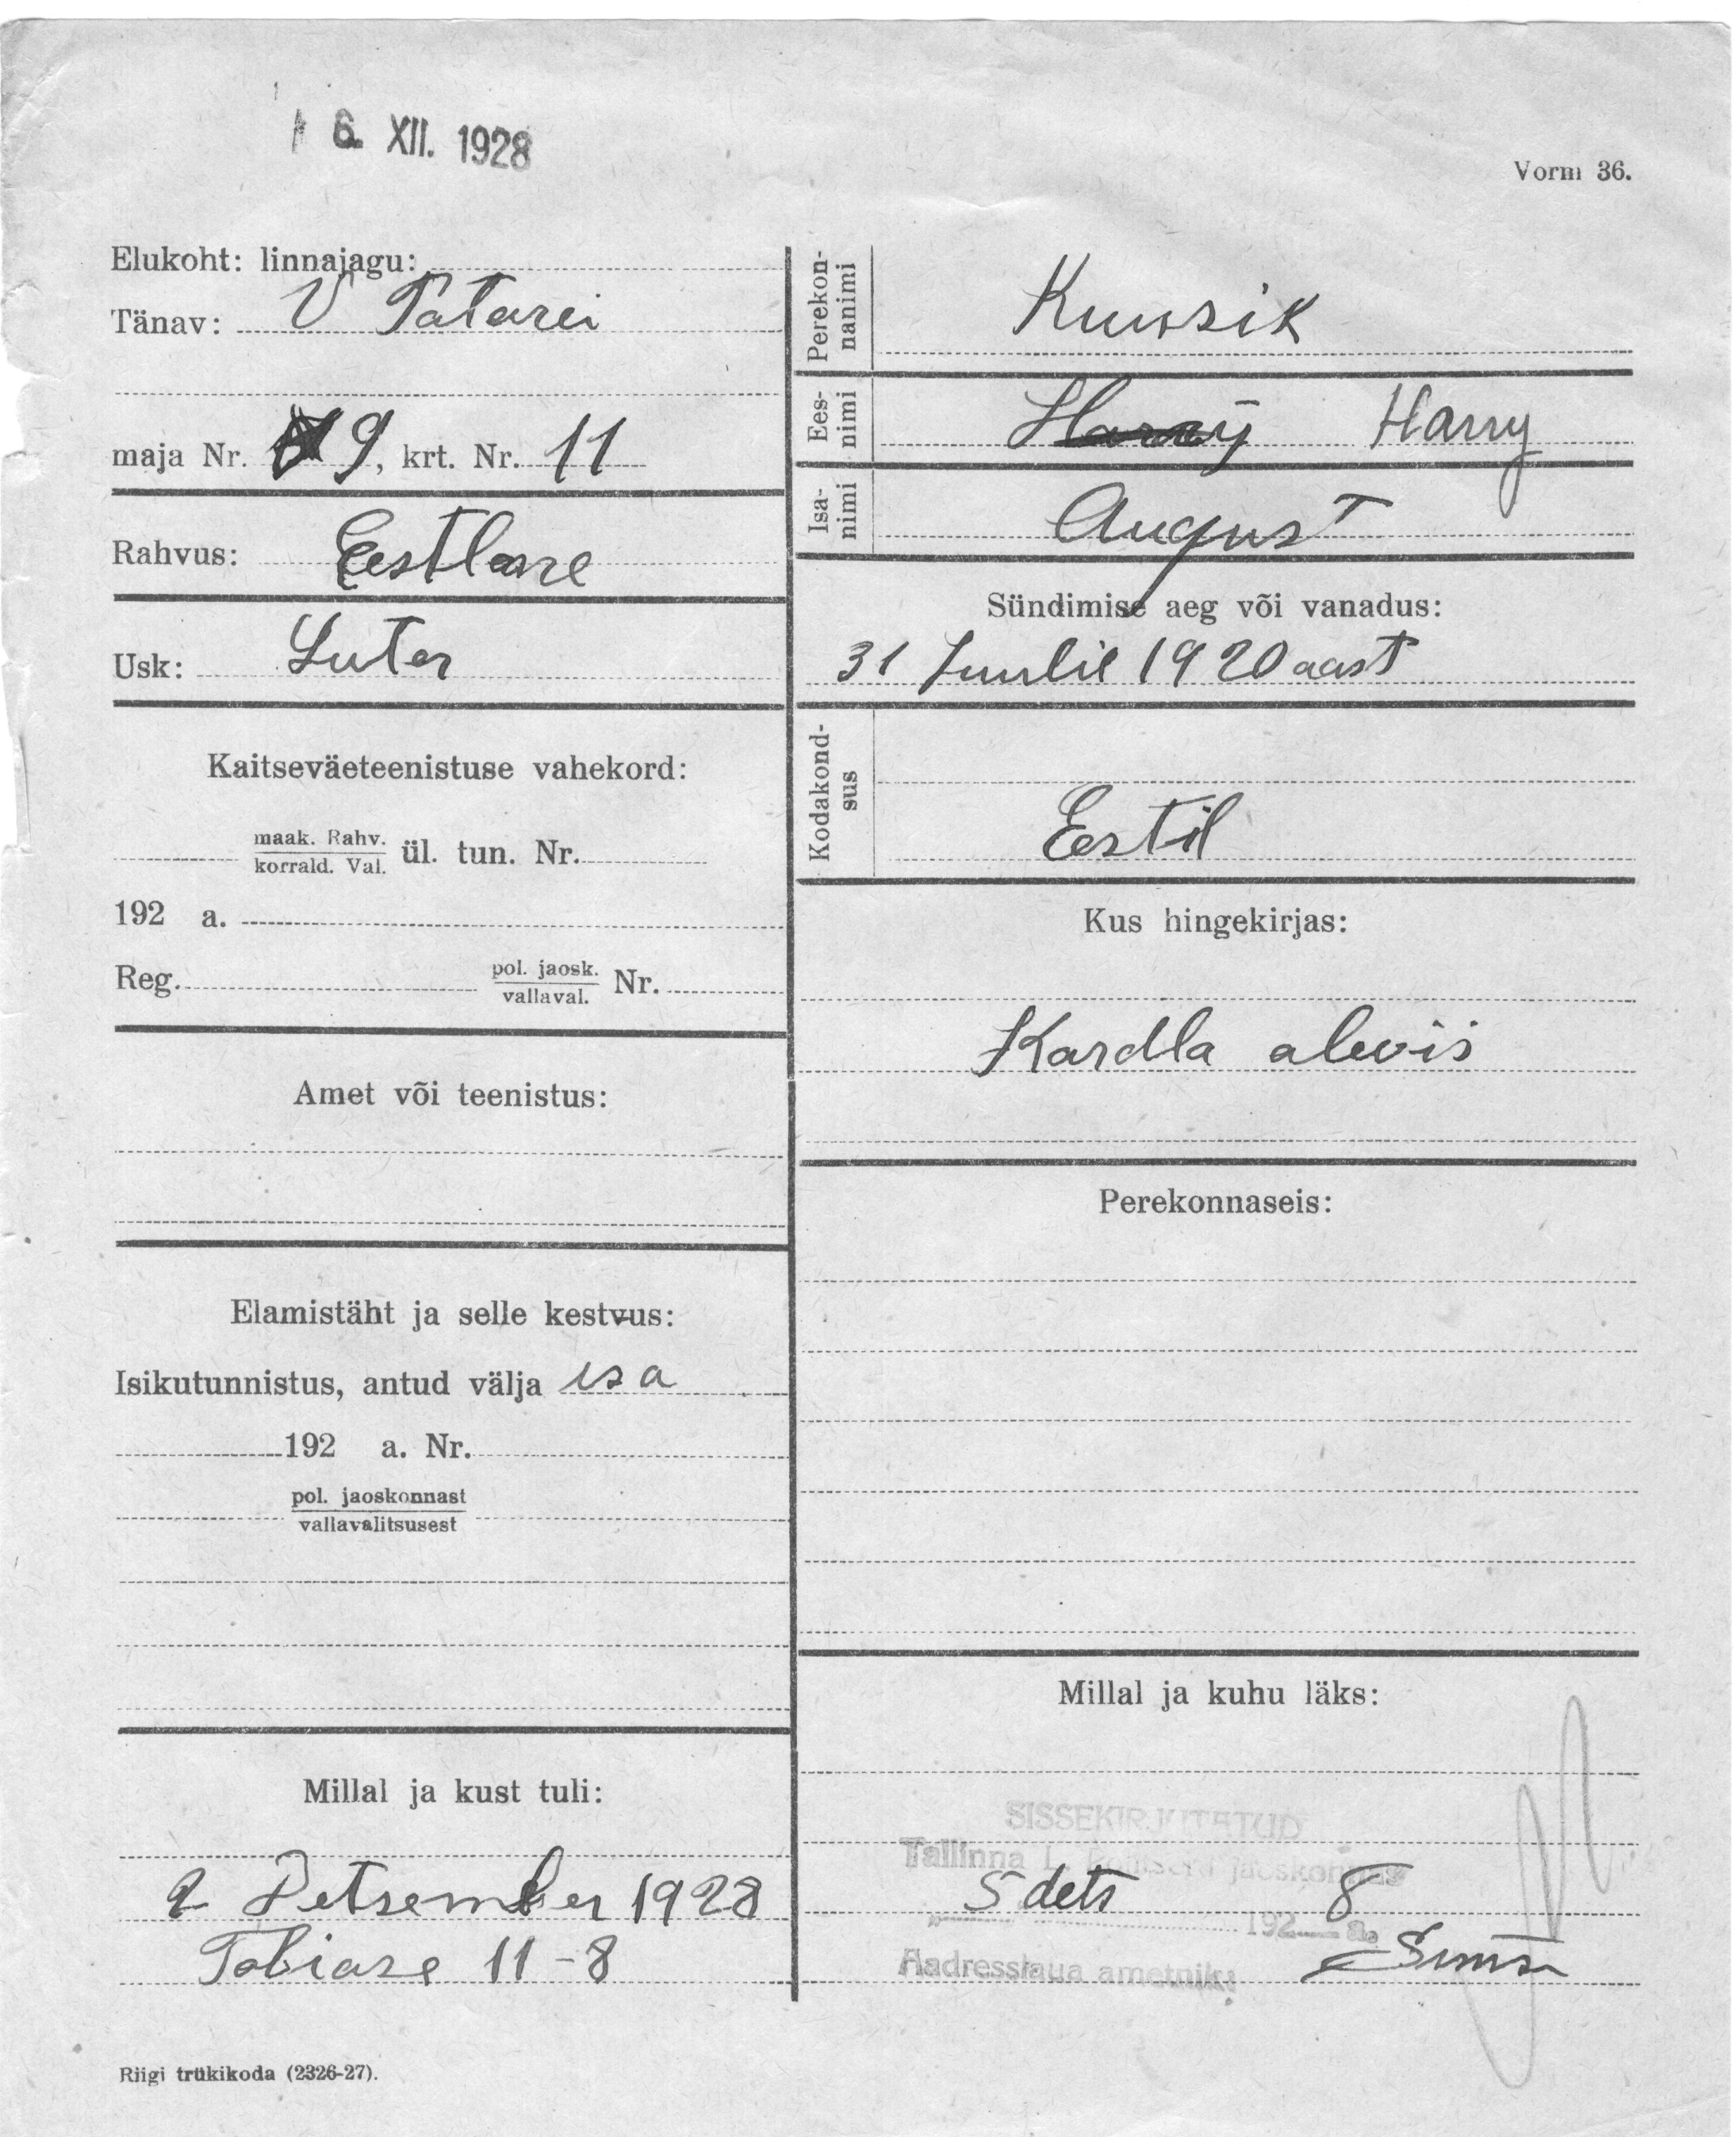 6. XII. 1928
Vorm 36.
Elukoht: linnajagu:
Tänav: V Patarei
maja Nr. 9, krt. Nr. 11
Rahvus: Eestlane
Usk: Luter
Kaitseväeteenistuse vahekord:
maak. Rahv.
korrald. Val.
ül. tun. Nr.
192 a.
Reg. pol. jaosk.
vallaval.
Nr.
Amet või teenistus:
Elamistäht ja selle kestvus:
Isikutunnistus, antud välja isa
192 a. Nr.
pol. jaoskonnast
vallavalitsusest
Millal ja kust tuli:
2 Detsember 1928
Tobiase 11-8
Riigi trükikoda (2326-27).
Perekon-
nanimi
Kuusik
Ees-
nimi
Harry Harry
Isa-
nimi
August
Sündimise aeg või vanadus:
31 Juulil 1920 aast
Kodakond-
sus
Eestil
Kus hingekirjas:
Kardla alevis
Perekonnaseis:
Millal ja kuhu läks:
SISSEKIRJUTATUD
Tallinna I. Politsei jaoskonnas
5 dets 1928 a.
Aadresslaua ametnik: